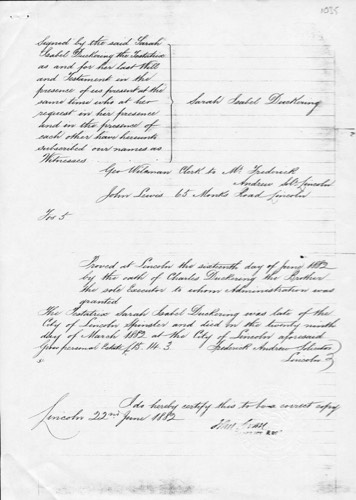 1035
Signed by the said Sarah
Isabel Duckering the Testatrix
as and for her last Will
and Testament in the
presence of us present at the
same time who at her
request in her presence
and in the presence of
each other have hereunto
subscribed our names as
Witnesses
Sarah Isabel Duckering
Geo Wilman Clerk to Mr Fredrick
Andrew Solr Lincoln
John Lewis 65 Monks Road Lincoln
Fos 5
Proved at Lincoln the sixteenth day of June 1882
by the oath of Charles Duckering the Brother
the sole Executor to whom Administration was
granted
The Testatrix Sarah Isabel Duckering was late of the
City of Lincoln Spinster and died on the twenty ninth
day of March 1882 at the City of Lincoln aforesaid
personal Estate £15. 14. 3
Frederick Andrew Solicitor
Lincoln
I do hereby certify this to be a correct copy
Lincoln 22nd June 1882